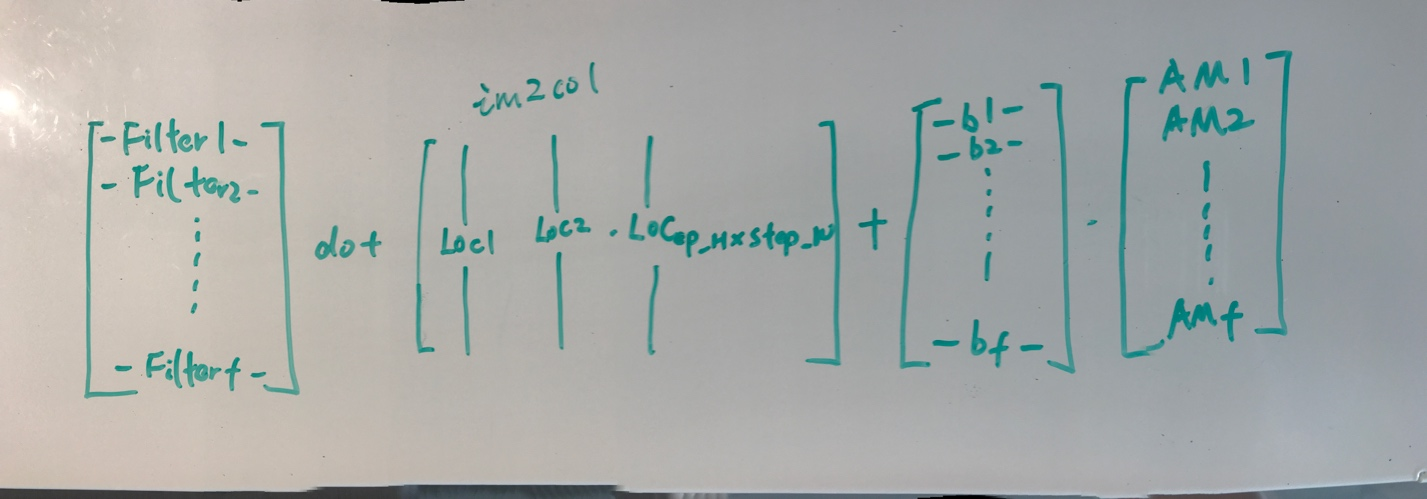 im2col
-Filter1-
-Filter2-
-Filterf-
dot
Loc1 Loc2 . Locep_HxStep_W
+
-b1-
-b2-
-bf-
.
AM1
AM2
AMf